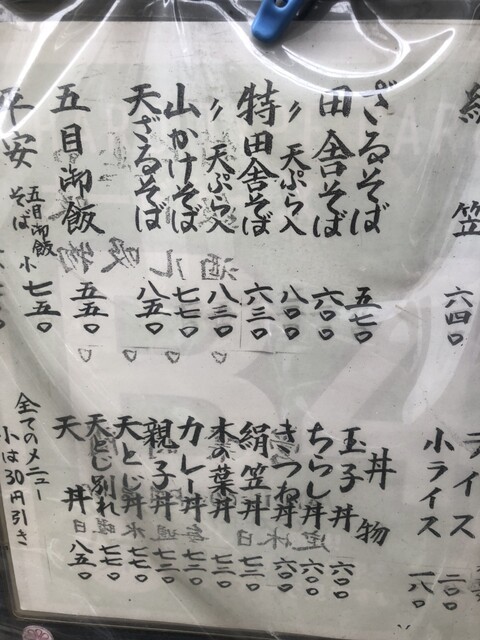 絹笠 六四〇
ざるそば 五七〇
田舎そば 六〇〇
〃 天ぷら入 八〇〇
特田舎そば 六三〇
〃 天ぷら入 八三〇
山かけそば 七七〇
天ざるそば 八五〇
五目御飯 五五〇
平安 五目御飯 そば 小 七五〇
ライス 二〇〇
小ライス 一八〇
丼物
玉子丼 六〇〇
ちらし丼 六〇〇
きつね丼 六〇〇
絹笠丼 七三〇
木の葉丼 七三〇
カレー丼 七三〇
親子丼 七三〇
天とじ丼 七七〇
天とじ別れ 七七〇
天丼 八五〇
全てのメニュー
小は30円引き